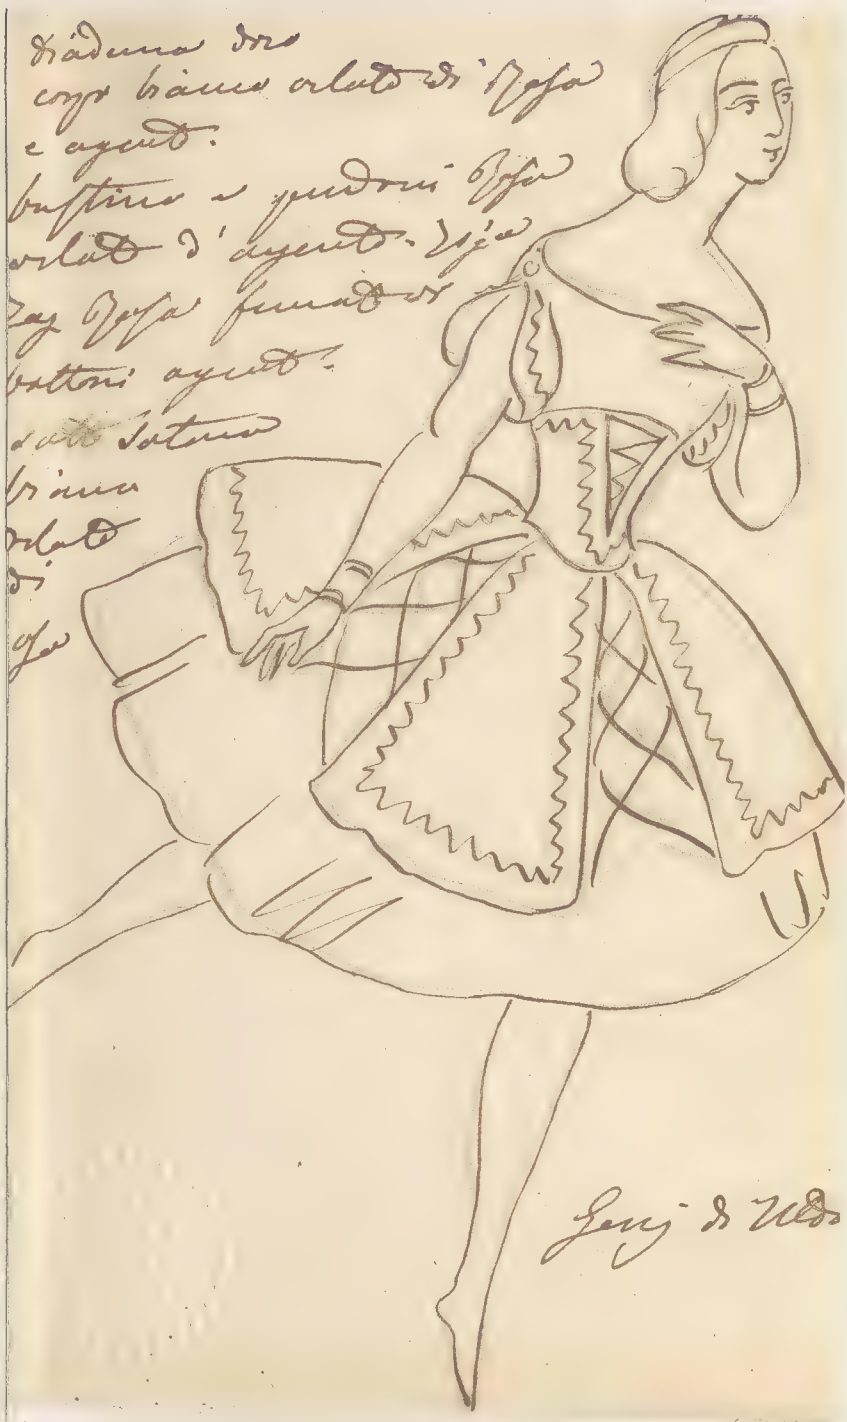 diadema doro
corpo bianco orlato di Rosa
e argent.
bustino e pendoni Rosa
orlat d'argent. Ziga
Zag Rosa fermat di
bottoni argent.
sott sotana
bianca
orlat
di
osa
Genj di